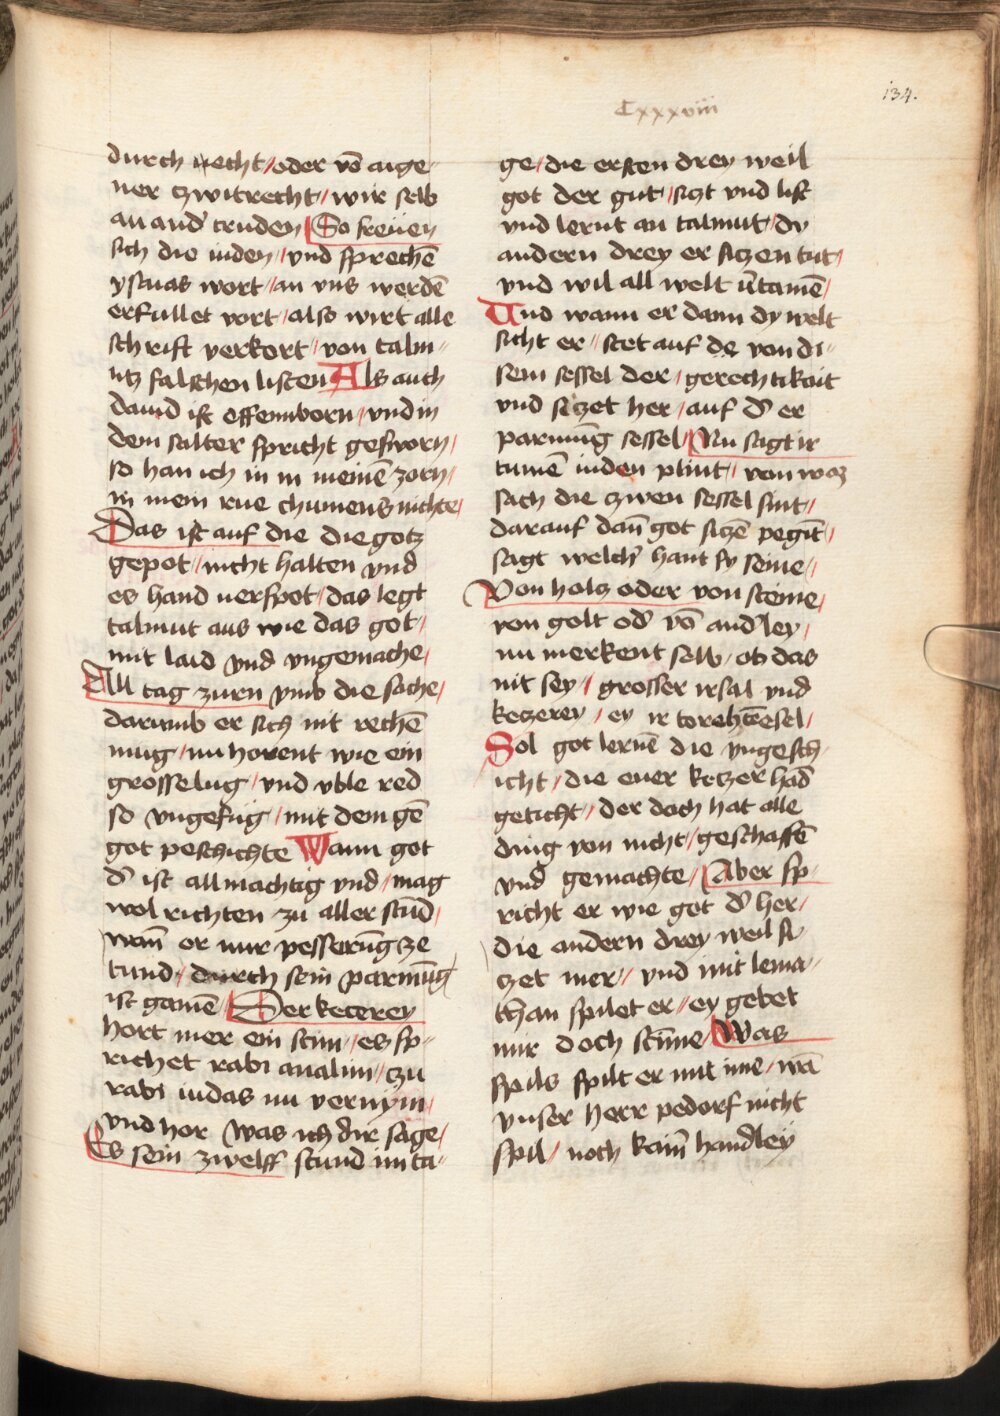 Cxxxviii
134.
durch necht / oder võ aige⸗
ner zwitrecht / wir selb
an and' truden / So freüen
sich die iuden / vnd sprechẽ
ysaias wort / an vns werdẽ
erfullet vort / also wirt alle
schrift verkort / von talm⸗
utz falschen listen Als auch
dauid ist offemworn / vnd in
dem salter spricht gesworn /
so han ich in in meinẽ zorn /
in mein rue chumens nichte /
Das ist auf die die gotz
gepot / nicht halten vnd
es hand uerspot / das legt
talmut aus wie das got /
mit laid vnd vngemache /
All tag zurn vmb die sache /
darumb er sich nit rechẽ
mug / nu horent wie ein
grosse lug / vnd vble red
so vngefüg / mit dem gẽ
got peschichte Wann got
d' ist allmachtig vnd / mag
wol richten zu aller stũd /
wañ er nur pesserũg ze
tund / durch sein parmũg
ist gamẽ / Der keczerey
hort mer ein stim / es sp⸗
richet rabi analim / czu
rabi iudas nu vernym /
vnd hor was ich dir sage /
Es sein zwelff stund im ta⸗
ge / die ersten drey weil
got der gut / sizt vnd list
vnd lernt an talmut / dy
andern drey er siczen tut /
vnd wil all welt v̄tamẽ /
Und wann er dann dy welt
sicht er / stet auf de von di⸗
sem sessel der / gerechtikait
vnd siczet her / auf d' er
parmũg sessel / Nu sagt ir
tumẽ iuden plint / von waz
sach die zwen sessel sint /
darauf dañ got siczẽ pegĩt /
sagt welch' hant sy seine /
Von holz oder von steine /
von golt od' võ and'ley /
nu merkent selb / ob das
nit sey / grosser irsal vnd
keczerey / ey ir torehtẽ esel /
Sol got lernẽ die vngesch⸗
icht / die euer keczer had
geticht / der doch hat alle
ding von nicht / geschaffẽ
vnd gemachte / Aber sp⸗
richt er wie got d' her /
die andern drey weil si
czet mer / vnd mit leuia⸗
than spilet er / ey gebet
mir doch stĩme / Was
spils spilt er mit ime / wã
vnser herr pedorf nicht
spil / noch kaiñ handley